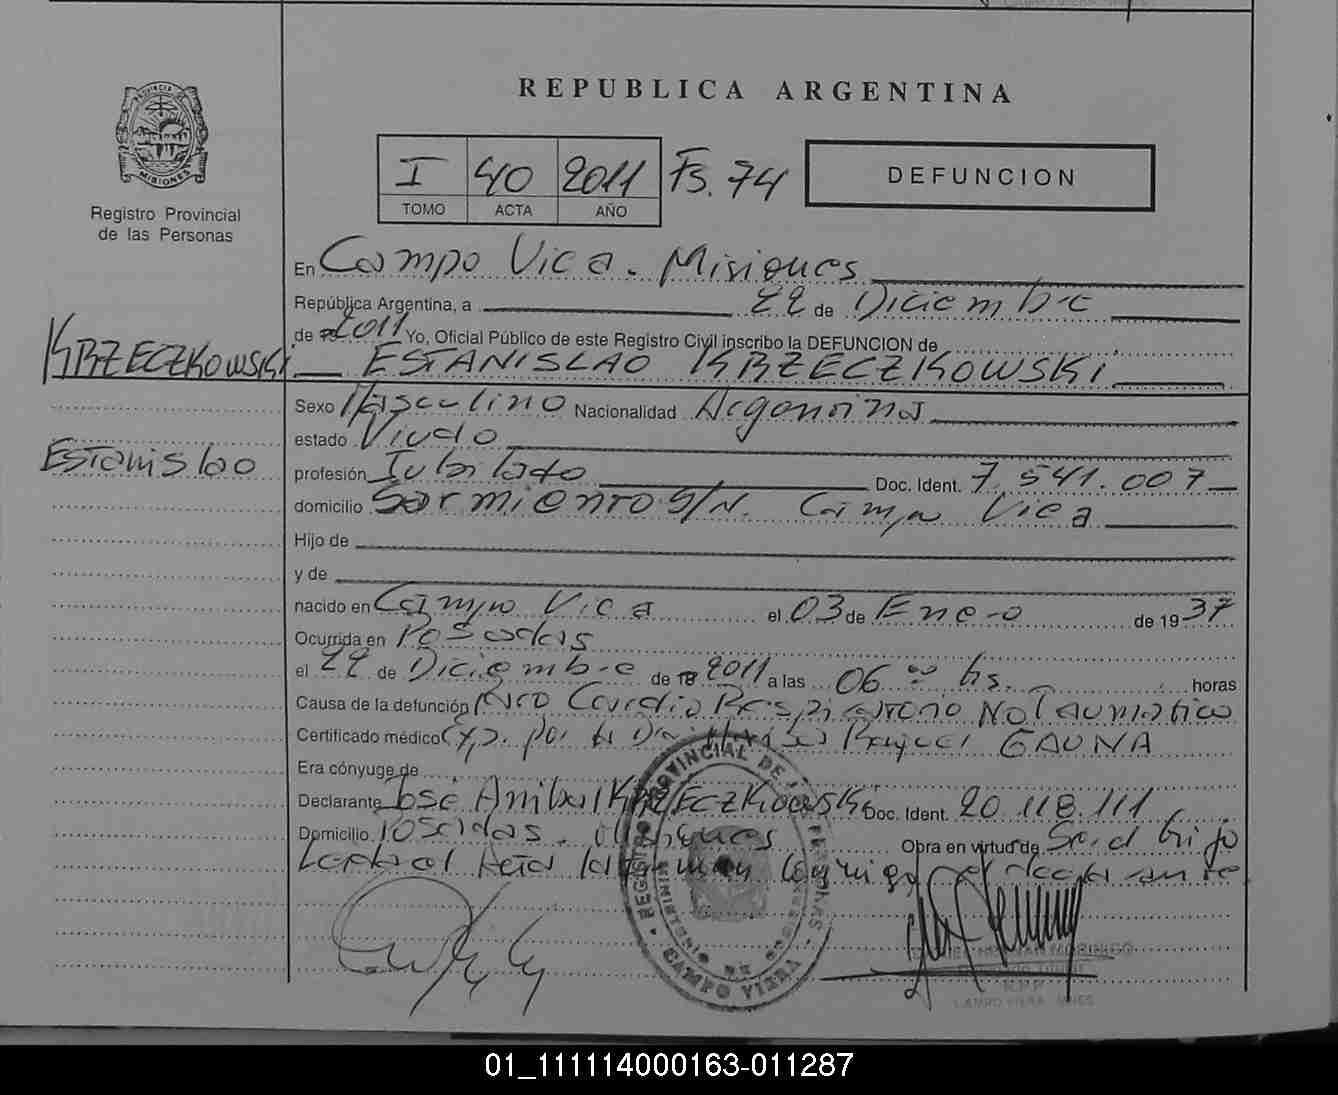 REPUBLICA ARGENTINA
PROVINCIA DE MISIONES
Registro Provincial
de las Personas
I 40 2011 Fs. 74
TOMO ACTA AÑO
DEFUNCION
En Campo Viera. Misiones
República Argentina, a 22 de Diciembre
de 19 2011 Yo, Oficial Público de este Registro Civil inscribo la DEFUNCION de
KRZECZKOWSKI ESTANISLAO KRZECZKOWSKI
Sexo Masculino Nacionalidad Argentina
estado Viudo
Estanislao
profesión Jubilado Doc. Ident. 7.541.007
domicilio Sarmiento S/N. Campo Viera
Hijo de
y de
nacido en Campo Viera el 03 de Enero de 1937
Ocurrida en Posadas
el 22 de Diciembre de 19 2011 a las 06 00 hs. horas
Causa de la defunción Paro Cardio Respiratorio No Traumatico
Certificado médico Exp. por la Dra. GAUNA
Era cónyuge de
Declarante José Anibal KRZECZKOWSKI Doc. Ident. 20.118.111
Domicilio Posadas. Misiones Obra en virtud de Ser el hijo
Leida el Acta la firman conmigo el declarante
REGISTRO PROVINCIAL DE LAS PERSONAS
CAMPO VIERA
MORINIGO
CAMPO VIERA MNES
01_111114000163-011287